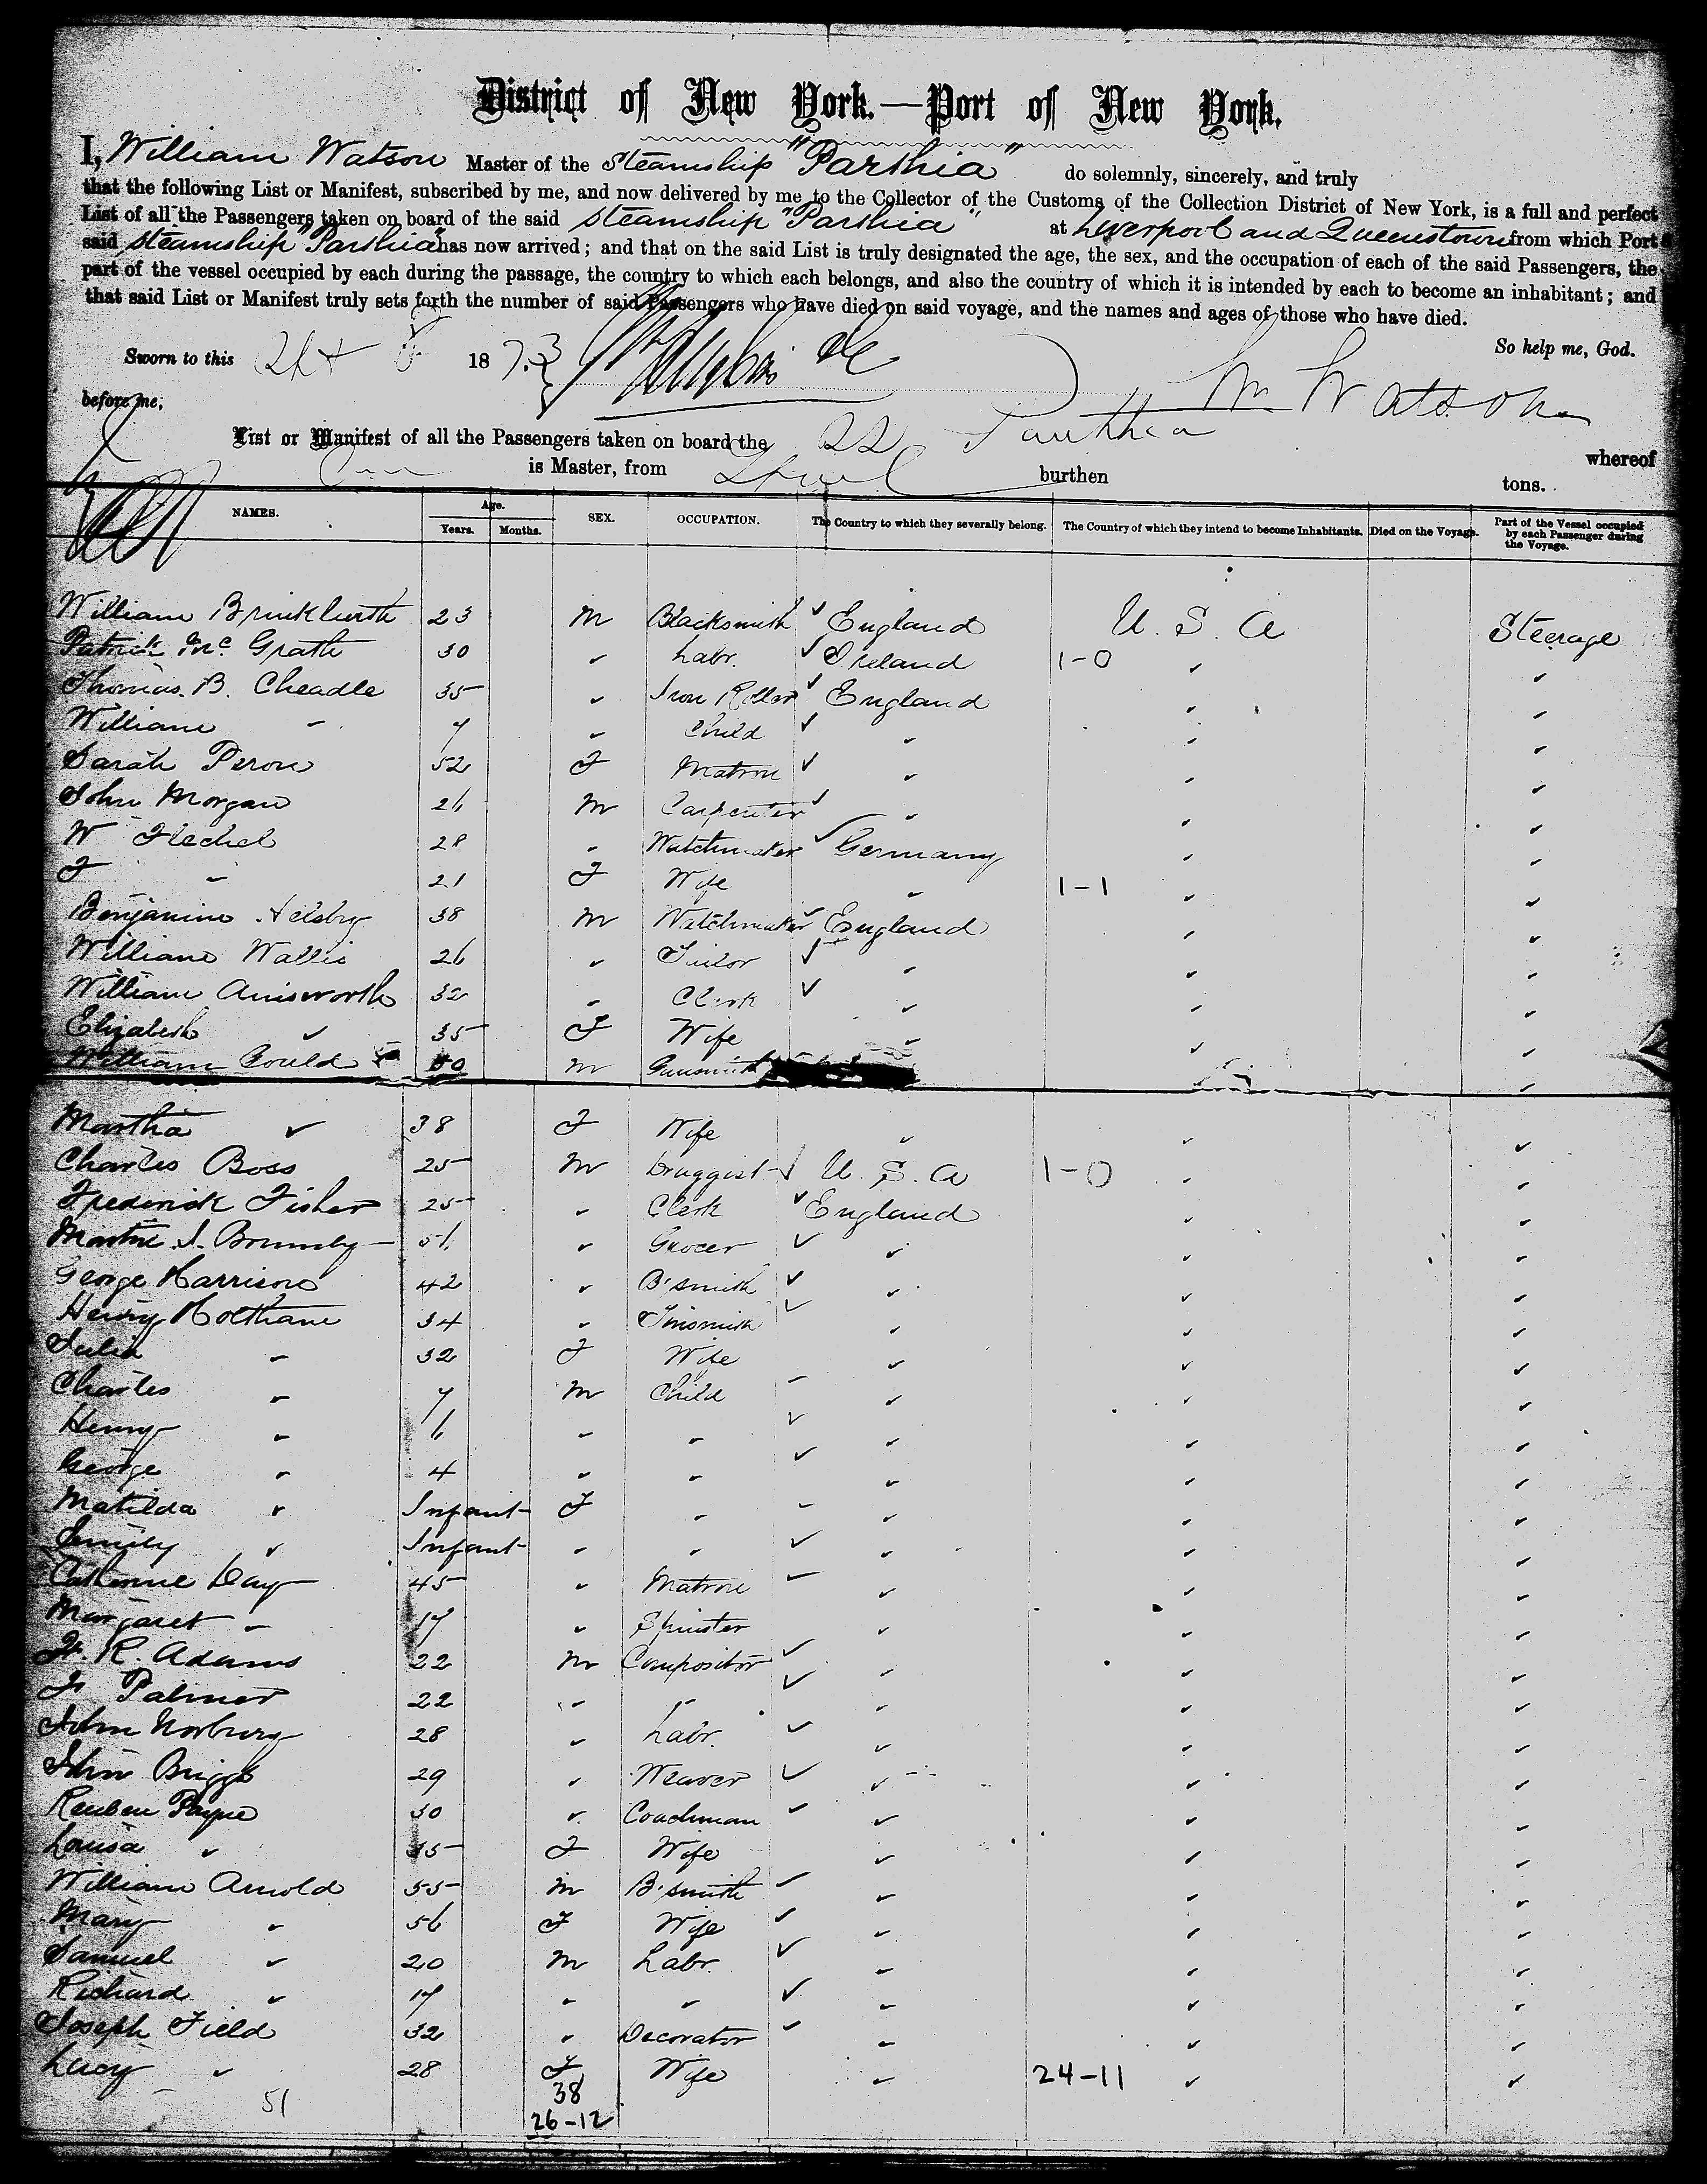 District of New York.—Port of New York.
I, William Watson Master of the Steamship "Parthia" do solemnly, sincerely, and truly
that the following List or Manifest, subscribed by me, and now delivered by me to the Collector of the Customs of the Collection District of New York, is a full and perfect
List of all the Passengers taken on board of the said Steamship "Parthia" at Liverpool and Queenstown from which Port
said Steamship "Parthia" has now arrived; and that on the said List is truly designated the age, the sex, and the occupation of each of the said Passengers, the
part of the vessel occupied by each during the passage, the country to which each belongs, and also the country of which it is intended by each to become an inhabitant; and
that said List or Manifest truly sets forth the number of said Passengers who have died on said voyage, and the names and ages of those who have died.
So help me, God.
Sworn to this 18 73
before me, Wm Watson
List or Manifest of all the Passengers taken on board the SS Parthia whereof
is Master, from burthen tons.
NAMES. Age. Years. Months. SEX. OCCUPATION. The Country to which they severally belong. The Country of which they intend to become Inhabitants. Died on the Voyage. Part of the Vessel occupied by each Passenger during the Voyage.
William 23 M Blacksmith ✓ England U. S. A Steerage
Patrick McGrath 30 " Labr. ✓ Ireland 1-0 " "
Thomas B. Cheadle 35 " Iron Roller ✓ England " "
William " 7 " Child ✓ " " "
Sarah 52 F Matron ✓ " " "
John Morgan 26 M Carpenter ✓ " " "
W Flechel 28 " Watchmaker ✓ Germany " "
F " 21 F Wife " 1-1 " "
Benjamin Helsby 38 M Watchmaker ✓ England " "
William Wallis 26 " Tailor ✓ " " "
William Ainsworth 32 " Clerk ✓ " " "
Elizabeth " 35 F Wife " " "
William Gould M Gunsmith "
Martha " 38 F Wife " " "
Charles Boss 25 M Druggist ✓ U. S. A 1-0 " "
Frederick Fisher 25 " Clerk ✓ England " "
51 " Grocer ✓ " " "
George Harrison 42 " B'smith ✓ " " "
Henry Holtham 34 " Tinsmith ✓ " " "
Julia " 32 F Wife " " "
Charles " 7 M Child " " "
Henry " 6 " " ✓ " " "
George " 4 " " ✓ " " "
Matilda " Infant F " " " "
Emily " Infant " " ✓ " " "
Catherine Day 45 " Matron " " "
Margaret " 17 " Spinster " " "
R. Adams 22 M Compositor ✓ " " "
Palmer 22 " " ✓ " " "
John Norbury 28 " Labr. ✓ " " "
John Briggs 29 " Weaver ✓ " " "
Reuben Payne 30 " Coachman ✓ " " "
Louisa " 35 F Wife " " "
William Arnold 55 M B'smith ✓ " " "
Mary " 56 F Wife ✓ " " "
Samuel " 20 M Labr. ✓ " " "
Richard " 17 " " ✓ " " "
Joseph Field 32 " Decorator ✓ " " "
Lucy " 28 F Wife " 24-11 " "
51 38
26-12